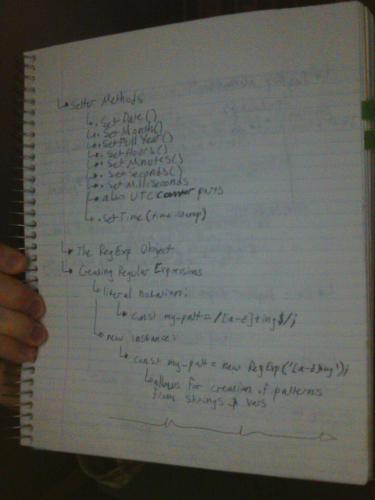 ↳ Setter Methods
↳ .setDate()
↳ .setMonth()
↳ .setFullYear()
↳ .setHours()
↳ .setMinutes()
↳ .setSeconds()
↳ .setMilliseconds
↳ also UTC
↳ .setTime(timestamp)
↳ The RegExp Object
↳ Creating Regular Expressions
↳ literal notation:
↳ const my_patt = /[a-z]+ing$/;
↳ new instance:
↳ const my_patt = new RegExp('[a-z]ing');
↳ allows for creation of patterns
from strings & vars